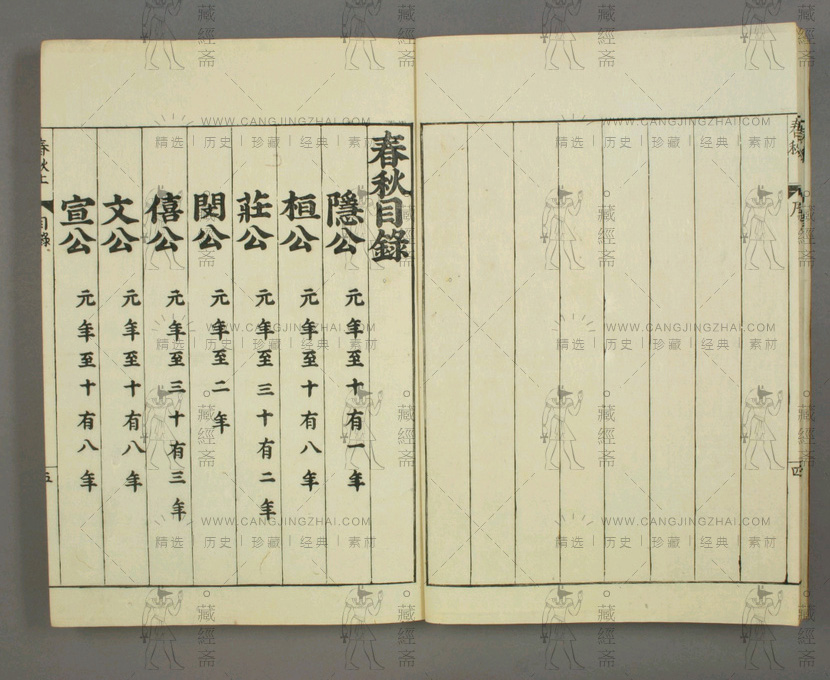 春秋目錄
隱公 元年至十有一年
桓公 元年至十有八年
莊公 元年至三十有二年
閔公 元年至二年
僖公 元年至三十有三年
文公 元年至十有八年
宣公 元年至十有八年
春秋上 目錄 五
春秋 序 四
藏經斋
WWW.CANGJINGZHAI.COM
精选 | 历史 | 珍藏 | 经典 | 素材